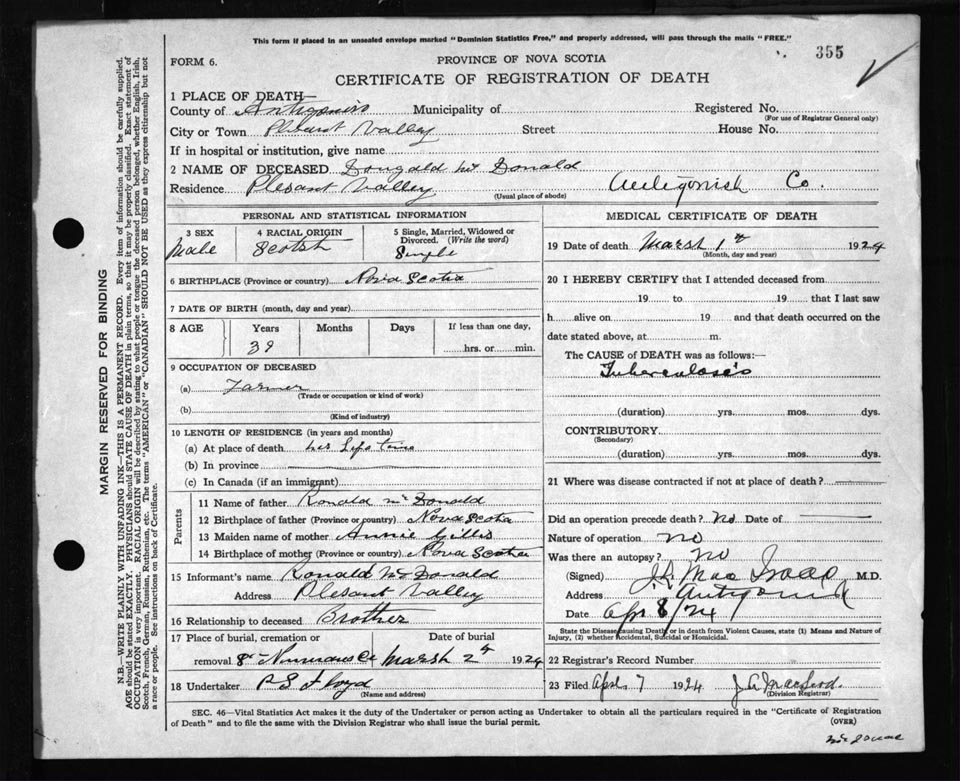 This form if placed in an unsealed envelope marked "Dominion Statistics Free," and properly addressed, will pass through the mails "FREE."
355
FORM 6.
PROVINCE OF NOVA SCOTIA
CERTIFICATE OF REGISTRATION OF DEATH
1 PLACE OF DEATH—
County of Antigonish Municipality of Registered No.
(For use of Registrar General only)
City or Town Plesant Valley Street House No.
If in hospital or institution, give name
2 NAME OF DECEASED Dougald Mc Donald
Residence Plesant Valley Antigonish Co.
(Usual place of abode)
PERSONAL AND STATISTICAL INFORMATION
3 SEX
Male
4 RACIAL ORIGIN
Scotsh
5 Single, Married, Widowed or Divorced. (Write the word)
Single
6 BIRTHPLACE (Province or country) Nova Scotia
7 DATE OF BIRTH (month, day and year)
8 AGE Years Months Days If less than one day,
39 hrs. or min.
9 OCCUPATION OF DECEASED
(a) Farmer
(Trade or occupation or kind of work)
(b)
(Kind of industry)
10 LENGTH OF RESIDENCE (in years and months)
(a) At place of death his Life time
(b) In province
(c) In Canada (if an immigrant)
Parents
11 Name of father Ronald McDonald
12 Birthplace of father (Province or country) Nova Scotia
13 Maiden name of mother Annie Gillis
14 Birthplace of mother (Province or country) Nova Scotia
15 Informant's name Ronald McDonald
Address Plesant Valley
16 Relationship to deceased Brother
17 Place of burial, cremation or Date of burial
removal Marsh 2nd 1924
18 Undertaker P S Floyd
(Name and address)
MEDICAL CERTIFICATE OF DEATH
19 Date of death Marsh 1st 1924
(Month, day and year)
20 I HEREBY CERTIFY that I attended deceased from
19 to 19 that I last saw
h alive on 19 and that death occurred on
date stated above, at m.
The CAUSE OF DEATH was as follows:—
Tuberculoses
(duration) yrs. mos. dys.
CONTRIBUTORY
(Secondary)
(duration) yrs. mos. dys.
21 Where was disease contracted if not at place of death?
Did an operation precede death? No Date of
Nature of operation No
Was there an autopsy? No
(Signed) J. Mac Isaac M.D.
Address Antigonish
Date Apr 8/24
State the Disease causing Death, or in death from Violent Causes, state (1) Means and Nature of
Injury, (2) whether Accidental, Suicidal or Homicidal.
22 Registrar's Record Number
23 Filed Apr. 7 1924 J A MacLeod.
(Division Registrar)
SEC. 46—Vital Statistics Act makes it the duty of the Undertaker or person acting as Undertaker to obtain all the particulars required in the "Certificate of Registration
of Death" and to file the same with the Division Registrar who shall issue the burial permit.
(OVER)
MARGIN RESERVED FOR BINDING
N.B.—WRITE PLAINLY WITH UNFADING INK—THIS IS A PERMANENT RECORD. Every item of information should be carefully supplied.
AGE should be stated EXACTLY. PHYSICIANS should STATE CAUSE OF DEATH in plain terms, so that it may be properly classified. Exact statement of
OCCUPATION is very important. RACIAL ORIGIN will be described by stating to what people or tongue the deceased person belonged, whether English, Irish,
Scotch, French, German, Russian, Ruthenian, etc. The terms "AMERICAN" or "CANADIAN" SHOULD NOT BE USED as they express citizenship but not
a race or people. See instructions on back of Certificate.